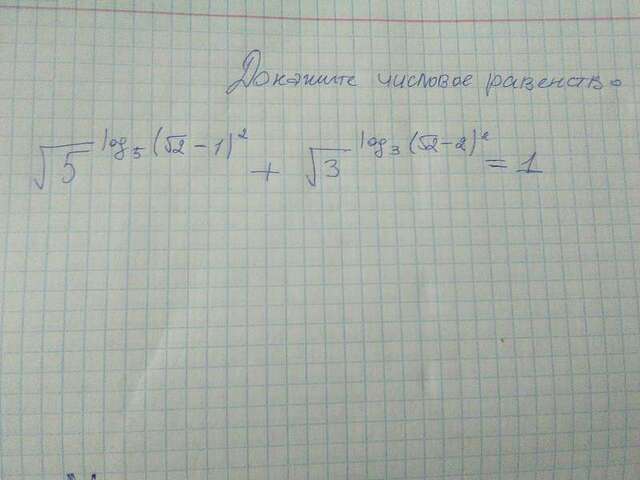 Докажите числовое равенство
√5^log₅(√2-1)² + √3^log₃(√2-2)² = 1